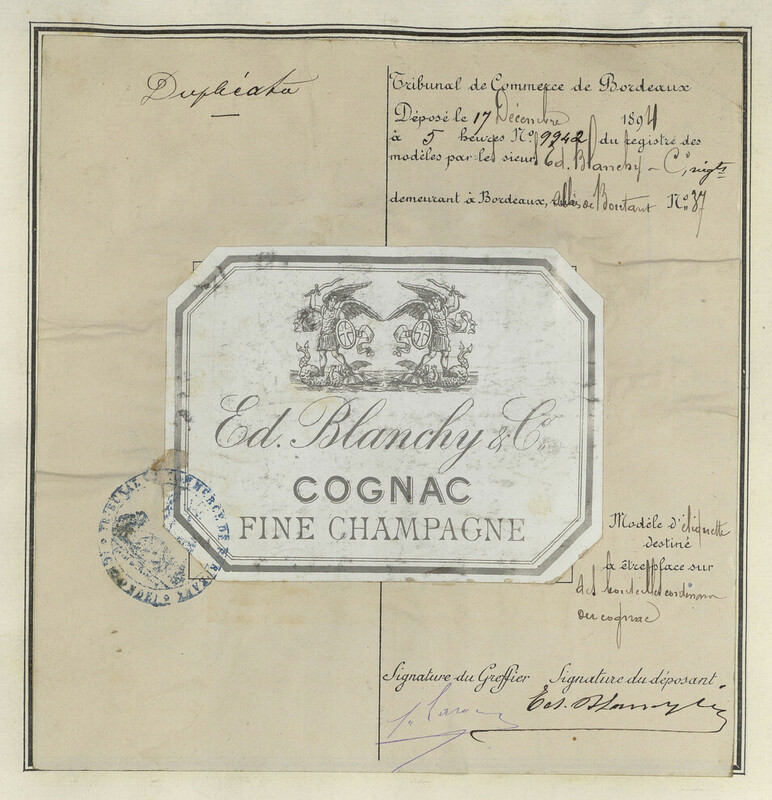 Duplicata
Tribunal de Commerce de Bordeaux
Déposé le 17 Décembre 1894
à 5 heures No. 9942 du registre des
modèles par le sieur Ed. Blanchy - Co, négts
demeurant à Bordeaux, de Boutaut No. 37
Ed. Blanchy & Co.
COGNAC
FINE CHAMPAGNE
TRIBUNAL COMMERCE DE
Modèle d'étiquette
destiné
à être place sur
du cognac
Signature du Greffier Signature du déposant
Ed. Blanchy &